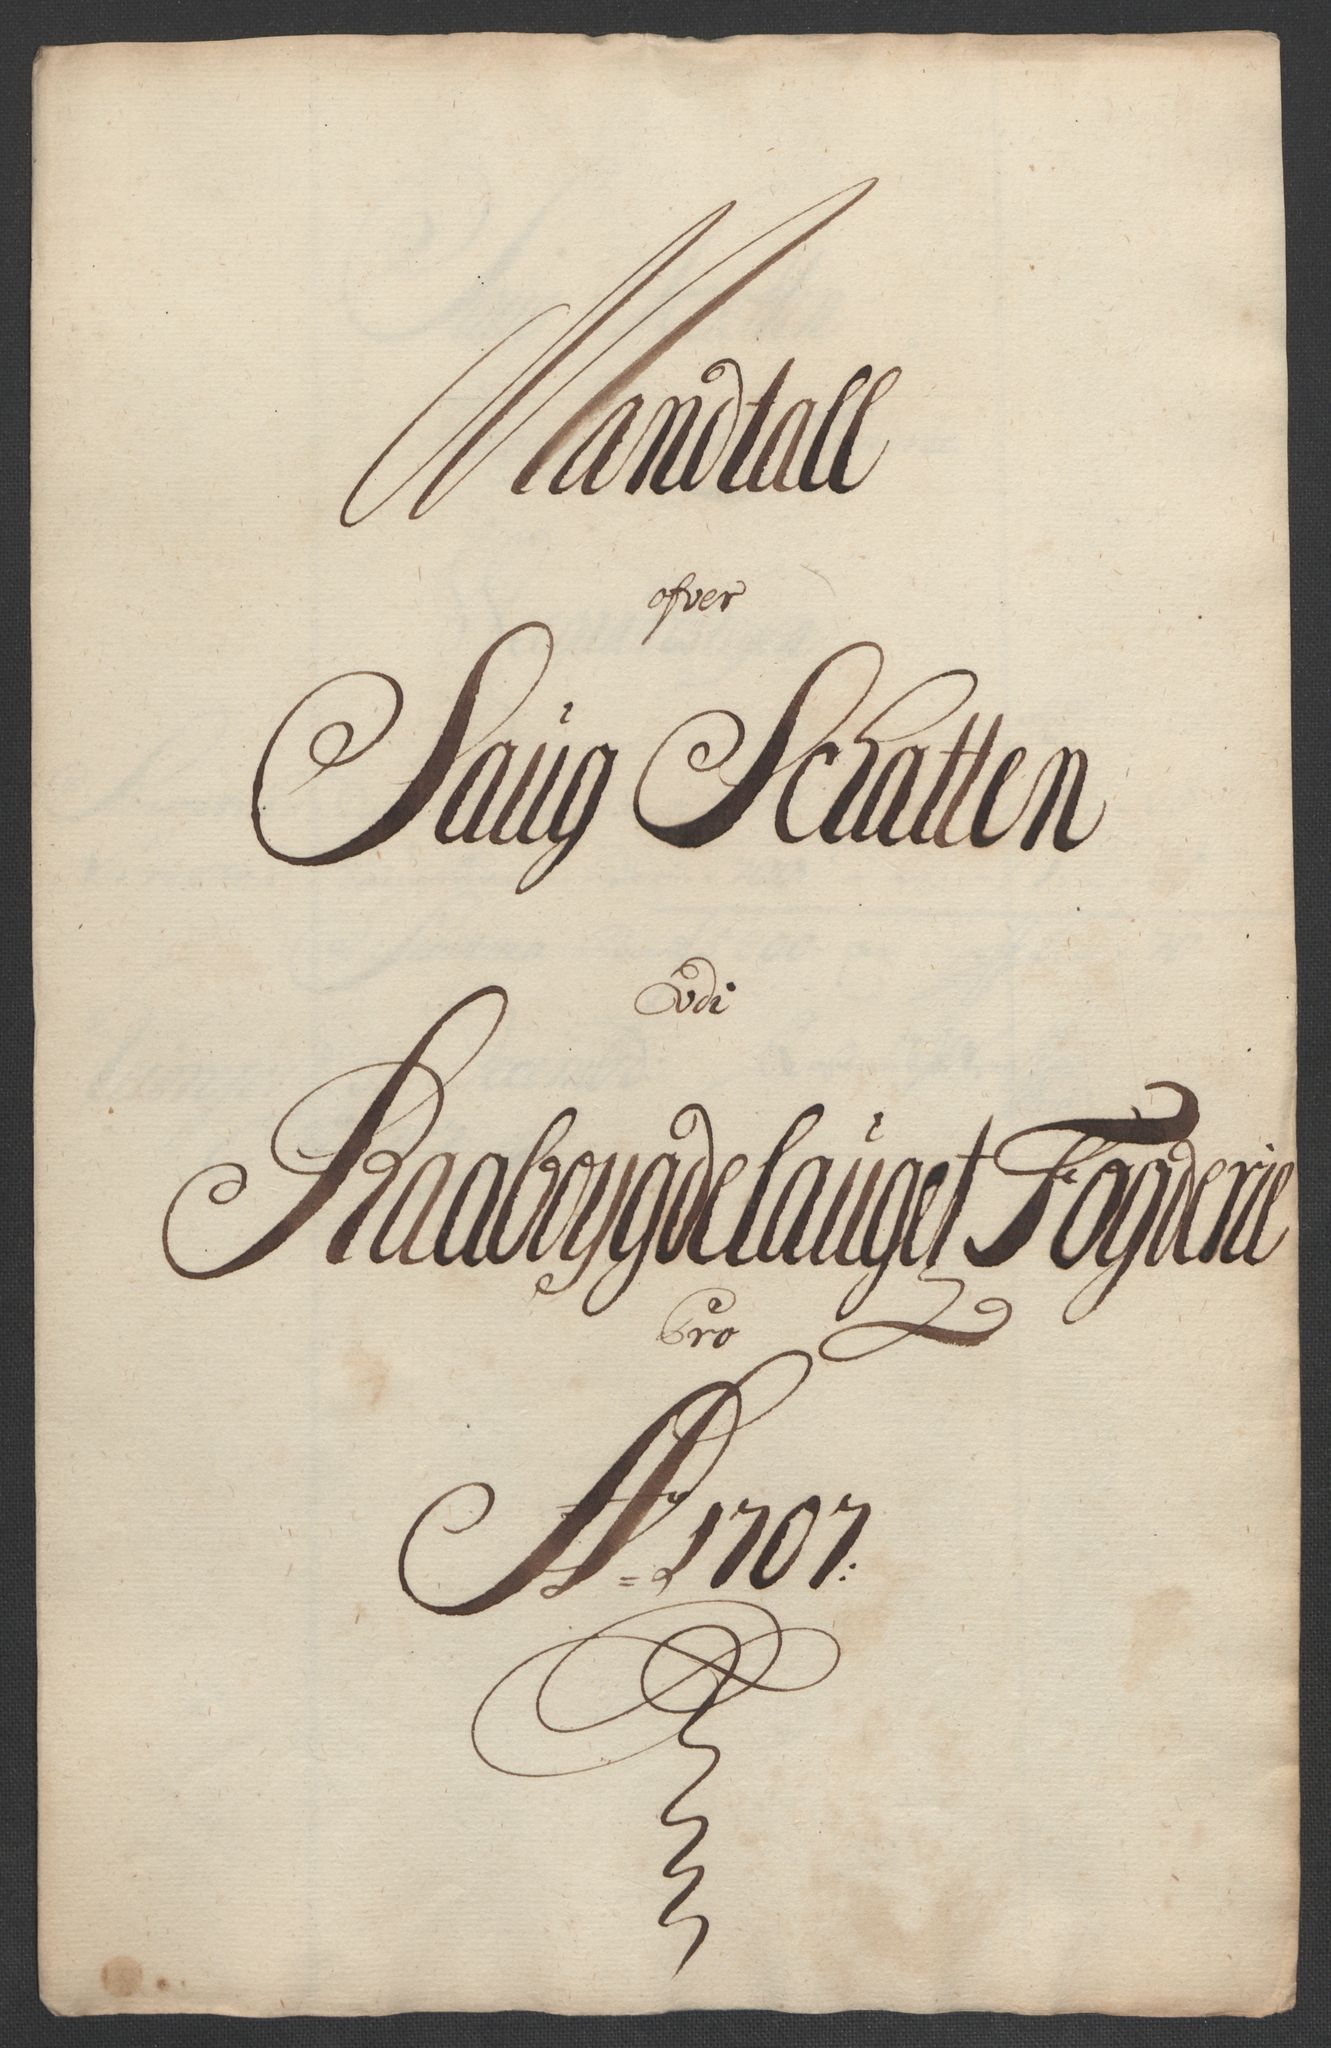 Mandtall
ofver
Saug Schatten
Udi
Raabøygdelauget Fogderie
Pro
A= 1707: